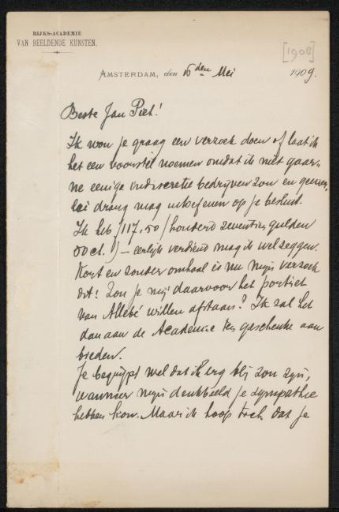 RIJKS-ACADEMIE
VAN BEELDENDE KUNSTEN.
[1909]
AMSTERDAM, den 15den Mei 1909.
Beste Jan Piet!
Ik wou je graag een verzoek doen of laat ik
het een voorstel noemen omdat ik niet gaar-
ne eenige indiscretie bedrijven zou en geenerlei
drang mag uitoefenen op je besluit.
Ik heb f 117.50 / honderd zeventien gulden
50 ct. !) – eerlijk verdiend mag ik wel zeggen.
Kort en zonder omhaal is nu mijn verzoek
dit: Zou je mij daarvoor het portret
van Allebé willen afstaan? Ik zal het
dan aan de Academie ten geschenke aan
bieden.
Je begrijpt wel dat ik erg blij zou zijn,
wanneer mijn denkbeeld je sympathie
hebben kon. Maar ik hoop toch dat je